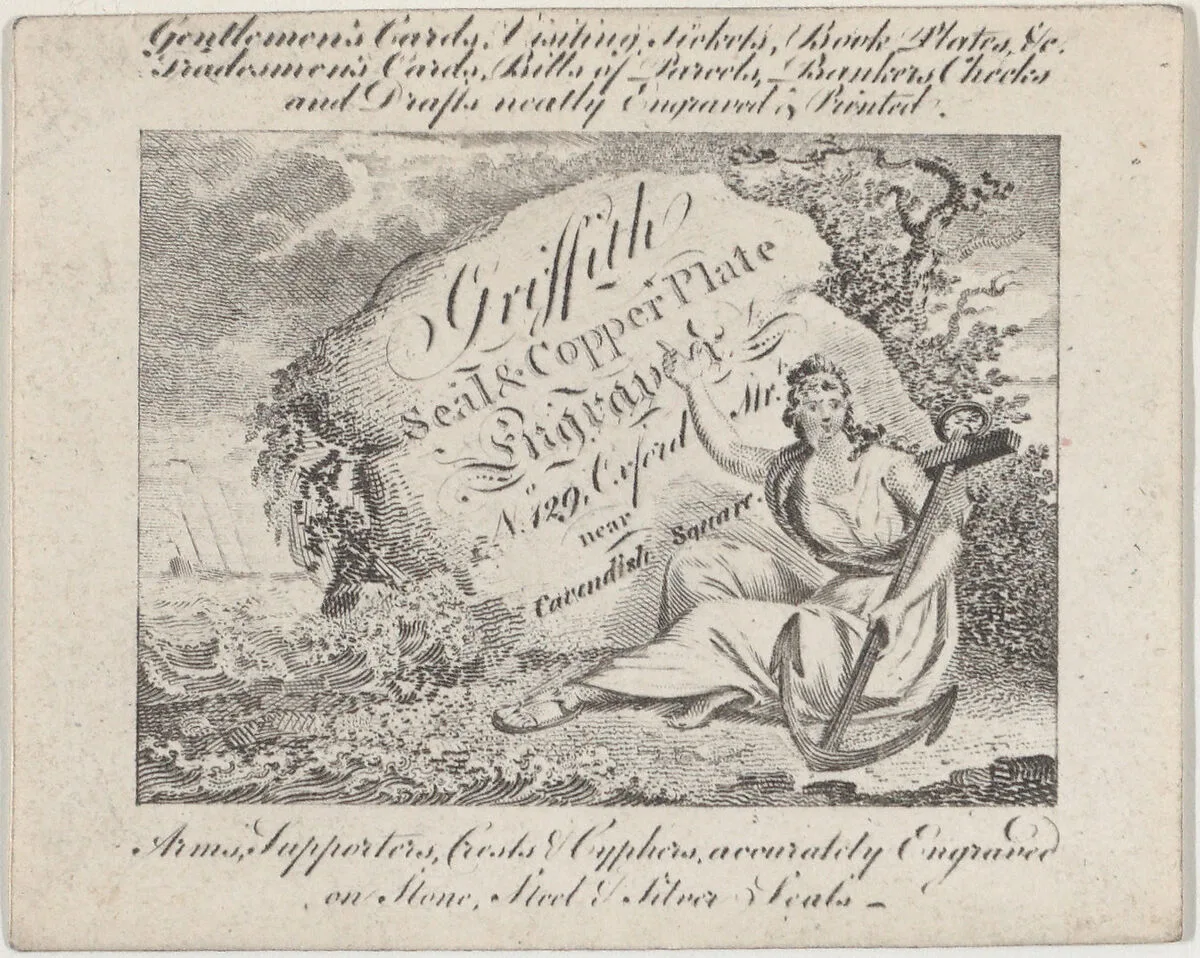 Gentlemen's Cards, Visiting Tickets, Book Plates, &c.
Tradesmen's Cards, Bills of Parcels, Bankers Checks
and Drafts neatly Engraved & Printed.
Griffith
Seal & Copper Plate
Engraver
No. 129, Oxford Str.
near
Cavendish Square.
Arms, Supporters, Crests & Cyphers, accurately Engraved
on Stone, Steel & Silver Seals -